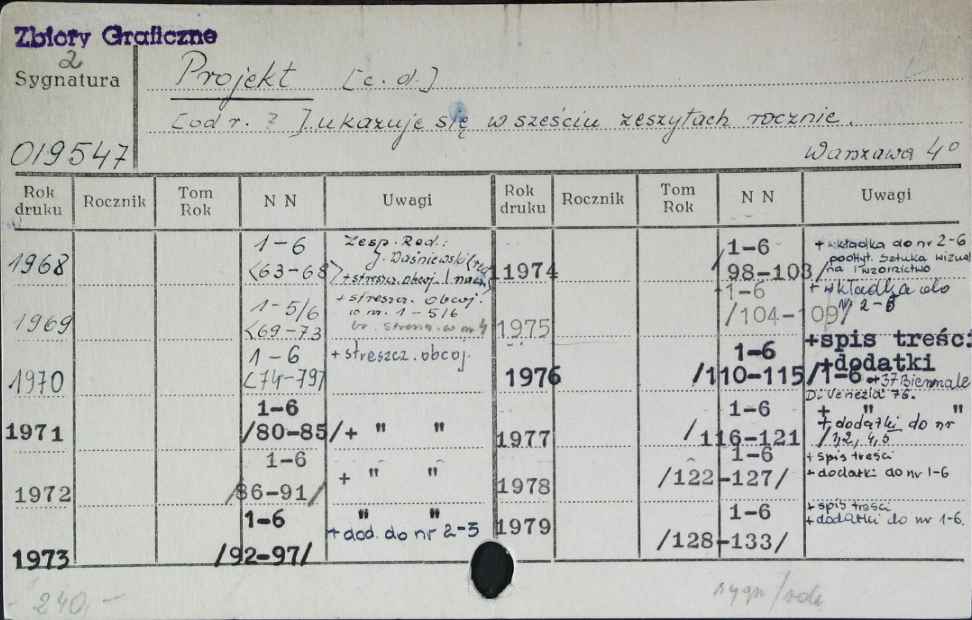 Zbiory Graficzne
2
Sygnatura
Projekt [c.d.]
[od r. ? ] ukazuje się w sześciu zeszytach rocznie.
019547
Warszawa 4°
Rok druku Rocznik Tom Rok N N Uwagi Rok druku Rocznik Tom Rok N N Uwagi
1968 1-6 <63-68> Zesp. Red.:
J. Daśniewski
+streszcz. obcoj.
1969 1-5/6 <69-73 +streszcz. obcoj.
w nr. 1-5/6
1970 1-6 <74-79> +streszcz. obcoj.
1971 1-6 /80-85/ + " "
1972 1-6 /86-91/ + " "
1973 1-6 /92-97/ " "
+dod. do nr 2-5
1974 1-6 /98-103/ +wkładka do nr 2-6
podtyt. Sztuka wizual
na i wzornictwo
1975 1-6 /104-109/ +wkładka do
nr 2-6
1976 1-6 /110-115/ +spis treści
+dodatki
/1-6 + 37 Biennale
D. Venezia 76.
1977 1-6 /116-121 + " "
+dodatki do nr
/1,2, 4,6
1978 1-6 /122-127/ +spis treści
+dodatki do nr 1-6
1979 1-6 /128-133/ +spis treści
+dodatki do nr 1-6.
240,-